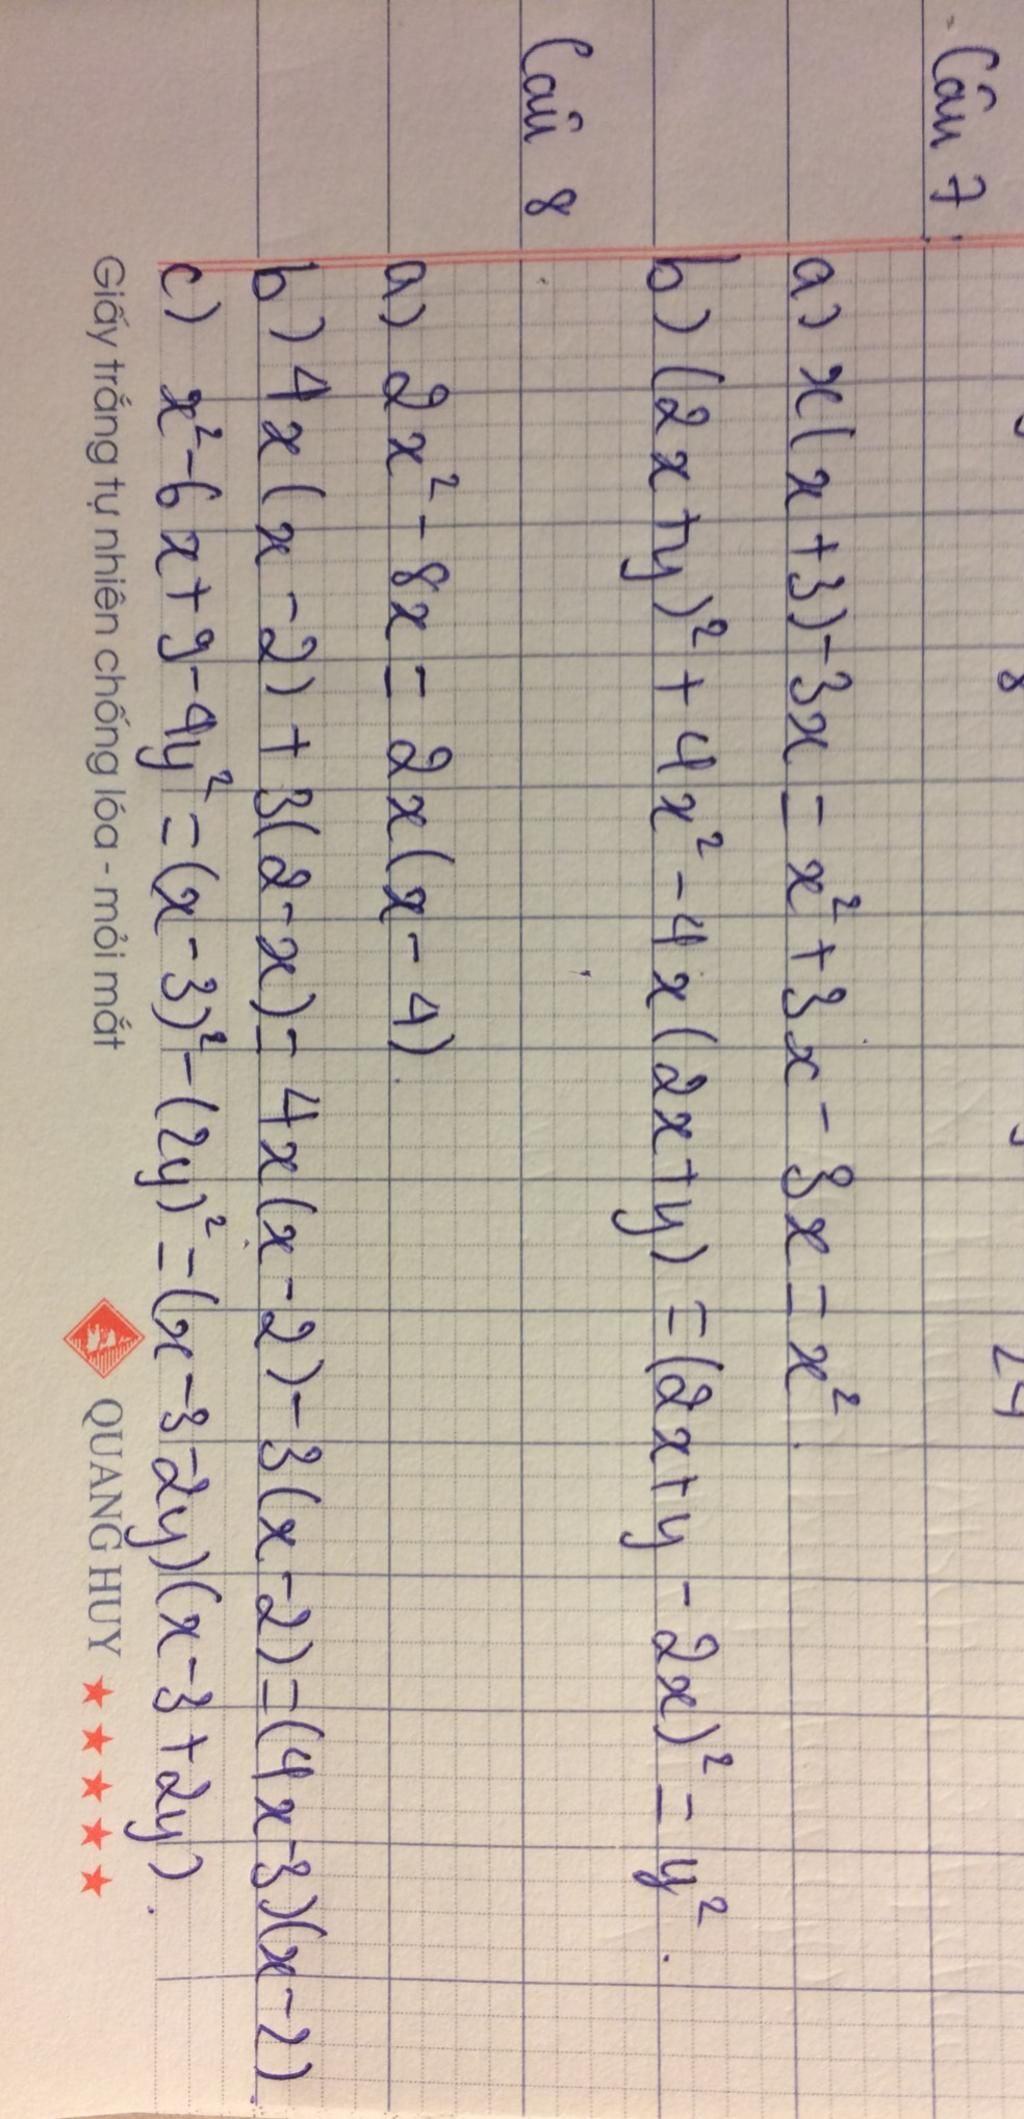 Câu 7.
a) x(x+3)-3x = x²+3x-3x = x².
b) (2x+y)²+4x²-4x(2x+y) = (2x+y-2x)² = y².
Câu 8
a) 2x²-8x = 2x(x-4).
b) 4x(x-2)+3(2-x) = 4x(x-2)-3(x-2) = (4x-3)(x-2).
c) x²-6x+9-4y² = (x-3)²-(2y)² = (x-3-2y)(x-3+2y).
Giấy trắng tự nhiên chống lóa - mỏi mắt QUANG HUY ★★★★★